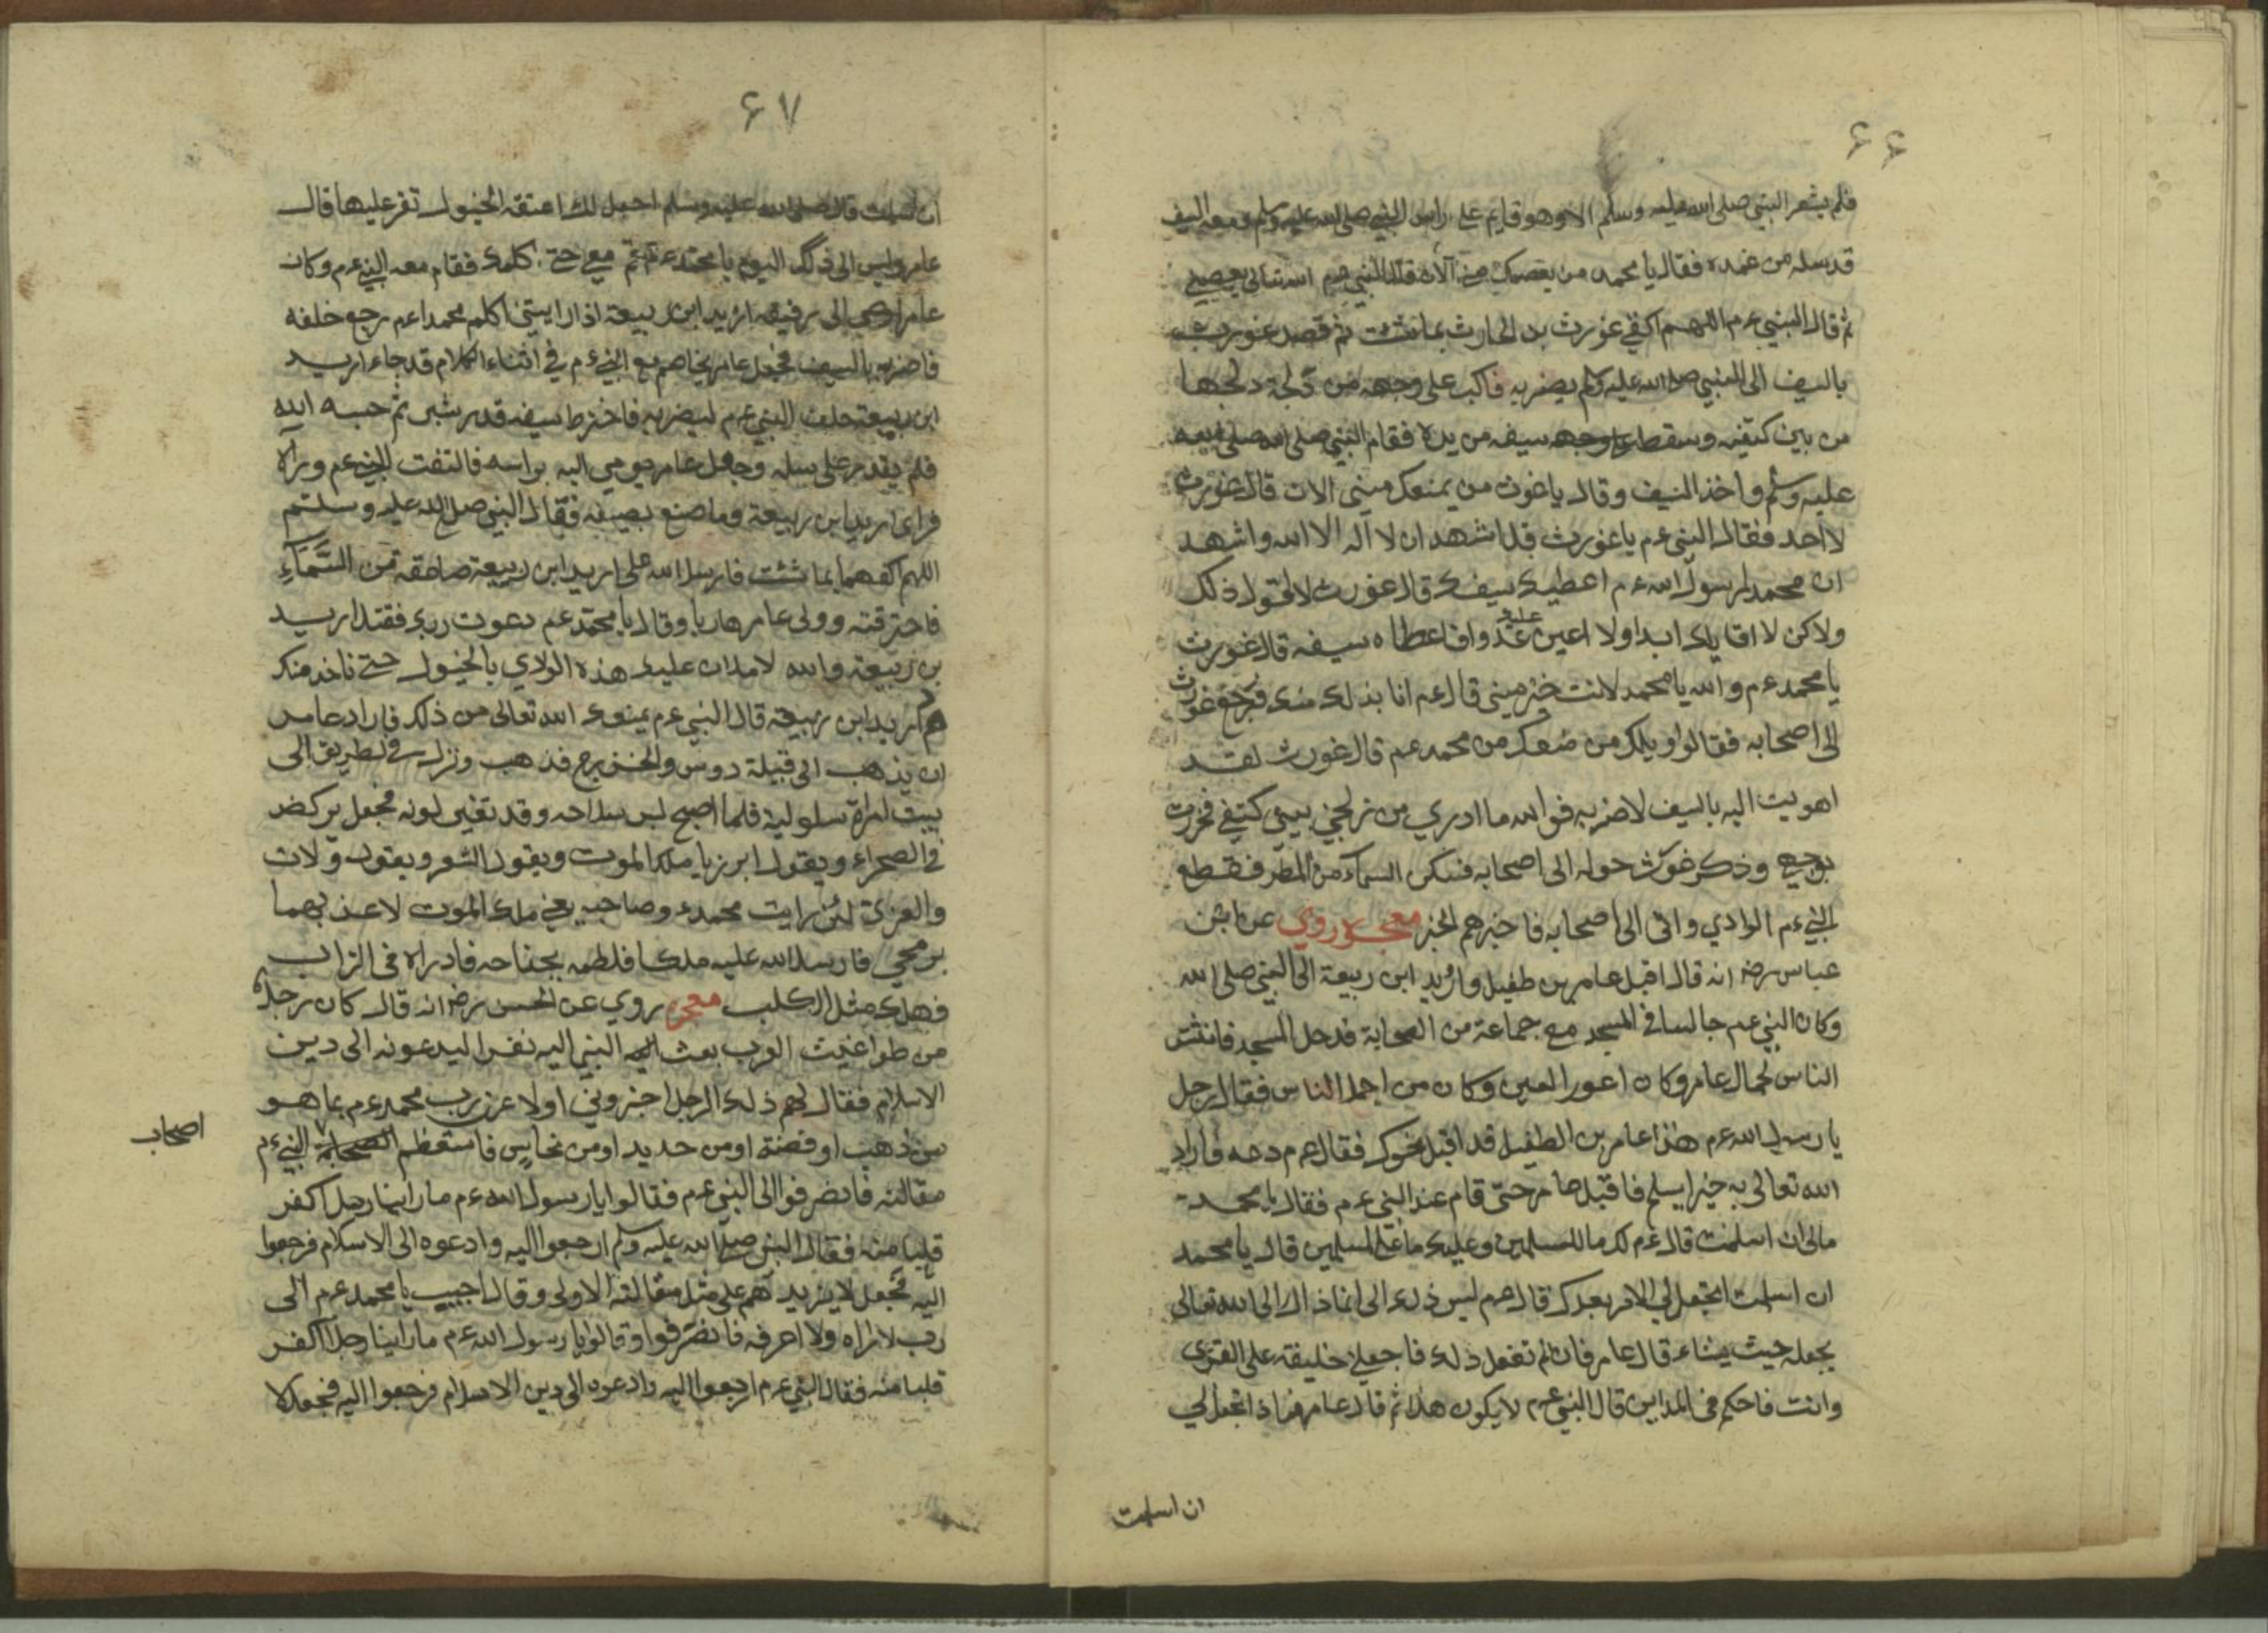 ۶۶
فلم يشعر النبي صلى الله عليه وسلم الا وهو قايم على راس النبي صلى الله عليه وسلم ومعه السيف
قد سله من غمده فقال يا محمد من يعصمك مني الآن قال النبي عم الله تعالى يعصمني
ثم قال النبي عم اللهم اكفني غورث بن الحارث بما شئت ثم قصد غورث
بالسيف الى النبي صلى الله عليه وسلم يضربه فاكب على وجهه من زلجة زلجها
من بين كتفيه وسقط سيفه من يده فقام النبي صلى الله
عليه وسلم واخذ السيف وقال يا غورث من يمنعك ميني الان قال غورث
لا احد فقال النبي عم يا غورث قل اشهد ان لا اله الا الله واشهد
ان محمدا رسول الله عم اعطيك سيفك قال غورث لا اقول ذلك
ولاكن لا اقاتلك ابدا ولا اعين عليك عدوا فاعطاه سيفه قال غورث
يا محمد عم والله يا محمد لانت خير ميني قال عم انا بذلك منك فرجع غورث
الى اصحابه فقالوا ويلك من منعك من محمد عم قال غورث لقد
اهويت اليه بالسيف لاضربه فوالله ما ادري من زلجني بين كتفي فخررت
بوجهي وذكر غورث حوله الى اصحابه فسكن السماء من المطر فقطع
النبي عم الوادي واتى الى اصحابه فاخبرهم الخبر معجزه روي عن ابن
عباس رضه انه قال اقبل عامر بن طفيل واربد ابن ربيعة الى النبي صلى الله
وكان النبي عم جالسا في المسجد مع جماعة من الصحابة فدخل المسجد فانتثر
الناس لجمال عامر وكان اعور العين وكان من اجمل الناس فقال رجل
يا رسول الله عم هذا عامر بن الطفيل قد اقبل نحوك فقال عم دعه فاراد
الله تعالى به خيرا يسلم فاقبل عامر حتى قام عند النبي عم فقال يا محمد
مالى ان اسلمت قال عم لك ما للمسلمين وعليك ما على المسلمين قال يا محمد
ان اسلمت اتجعل لي الامر بعدك قال عم ليس ذلك الى انما ذاك الى الله تعالى
يجعله حيث يشاء قال عامر فان لم تفعل ذلك فاجعلني خليفة على القرى
وانت فاحكم في المداين قال النبي عم لا يكون هذا ثم قال عامر فماذا تجعل لي
ان اسلمت
۶۷
ان اسلمت قال صلى الله عليه وسلم اجعل لك اعنقة الخيول تغز عليها قال
عامر وليس الى ذلك اليوم يا محمد عم قم معي حتى اكلمك فقام معه النبي عم وكان
عامر اوصى الى رفيقه اربد ابن ربيعة اذا رايتني اكلم محمدا عم رجع خلفه
فاضربه بالسيف فجعل عامر يخاصم مع النبي عم في اثناء الكلام قد جاء اربد
ابن ربيعة خلف النبي عم ليضربه فاخترط سيفه قدر شبر ثم حبسه الله
فلم يقدر على سله وجعل عامر يومي اليه براسه فالتفت النبي عم وراه
فراى اربد ابن ربيعة وما صنع بصيفه فقال النبي صلى الله عليه وسلم
اللهم اكفهما بما شئت فارسل الله على اربد ابن ربيعة صاعقة من السماء
فاحترقته وولى عامر هاربا وقال يا محمد عم دعوت ربك فقتل اربد
بن ربيعة والله لاملان عليك هذه الوادي بالخيول حتى ناخذ منك
دم اربد ابن ربيعة قال النبي عم يمنعك الله تعالى من ذلك فاراد عامر
ان يذهب الى قبيلة دوس والخزرج فذهب ونزل في الطريق الى
بيت امراة سلولية فلما اصبح لبس سلاحه وقد تغير لونه فجعل يركض
في الصحراء ويقول ابرز يا ملك الموت ويقول الشعر ويقول ولات
والعزى لئن رايت محمد عم وصاحبه يعني ملك الموت لاعذبهما
برمحي فارسل الله عليه ملكا فلطمه بجناحه فادراه في التراب
فهلك مثل الكلب معجزه روي عن الحسن رضه انه قال كان رجلا
من طواغيت العرب بعث النبي اليه نفرا ليدعونه الى دين
الاسلام فقال لهم ذلك الرجل اخبروني اولا عن رب محمد عم بما هو
من ذهب او فضة او من حديد او من نحاس فاستعظم الصحابة النبي عم
اصحاب
مقالته فانصرفوا الى النبي عم فقالوا يا رسول الله عم ما راينا رجل اكفر
قلبا منه فقال النبي صلى الله عليه وسلم ارجعوا اليه وادعوه الى الاسلام فرجعوا
اليه فجعل لا يزيدهم على مثل مقالته الاولى وقال اجيب يا محمد عم الى
رب لا اراه ولا اعرفه فانصرفوا وقالوا يا رسول الله عم ما راينا رجلا اكفر
قلبا منه فقال النبي عم ارجعوا اليه وادعوه الى دين الاسلام فرجعوا اليه فجعل لا